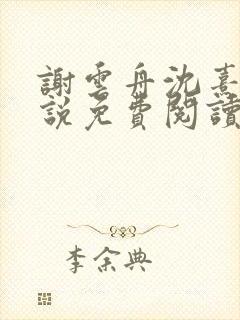 謝雲舟沈熹
說免費閱讀
李余典